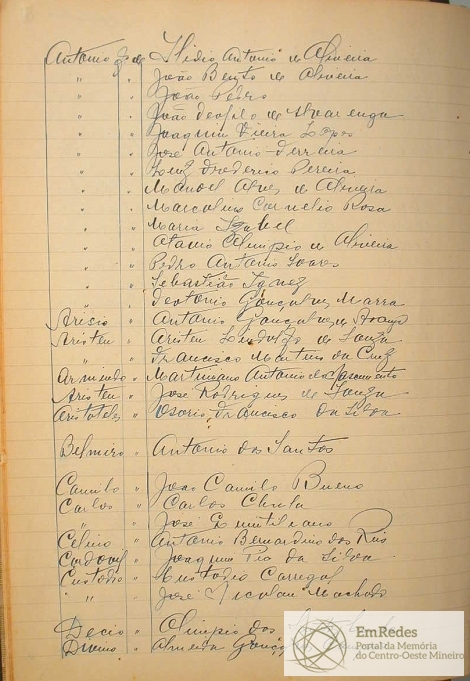 Antonio fo de Ilidio Antonio de Oliveira
" " João Bento de Oliveira
" " João Pedro
" " João Teofilo de Alvarenga
" " Joaquim Vieira Lopes
" " José Antonio Ferreira
" " Luiz Frederico Pereira
" " Manoel Alves de
" " Marcolino Cornelio Rosa
" " Maria Izabel
" " Otavio Olimpio de Oliveira
" " Pedro Antonio Soares
" " Sebastião Ignez
" " Teotonio Gonçalves Marra
" Antonio Gonçalves de Araujo
Aristeu " Aristeu Lindolfo de Souza
" " Francisco Martins da Cruz
Armindo " Martiniano Antonio do Nascimento
Aristeu " José Rodrigues de Souza
Aristoteles " Osorio Francisco da Silva
Belmiro " Antonio dos Santos
Camilo " João Camilo Bueno
Carlos " Carlos
" " José
Celino " Antonio Bernardino dos Reis
" Joaquim Pio da Silva
Custodio " Custodio Carregal
" " José Nicolau Machado
Decio " Olimpio dos
" Almeida
EmRedes
Portal da Memória
do Centro-Oeste Mineiro